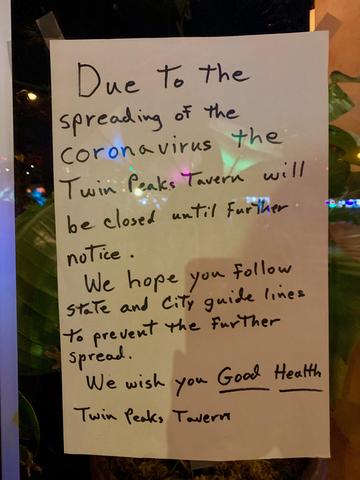 Due to the
spreading of the
coronavirus the
Twin Peaks Tavern will
be closed until further
notice.
We hope you follow
state and city guide lines
to prevent the further
spread.
We wish you Good Health
Twin Peaks Tavern